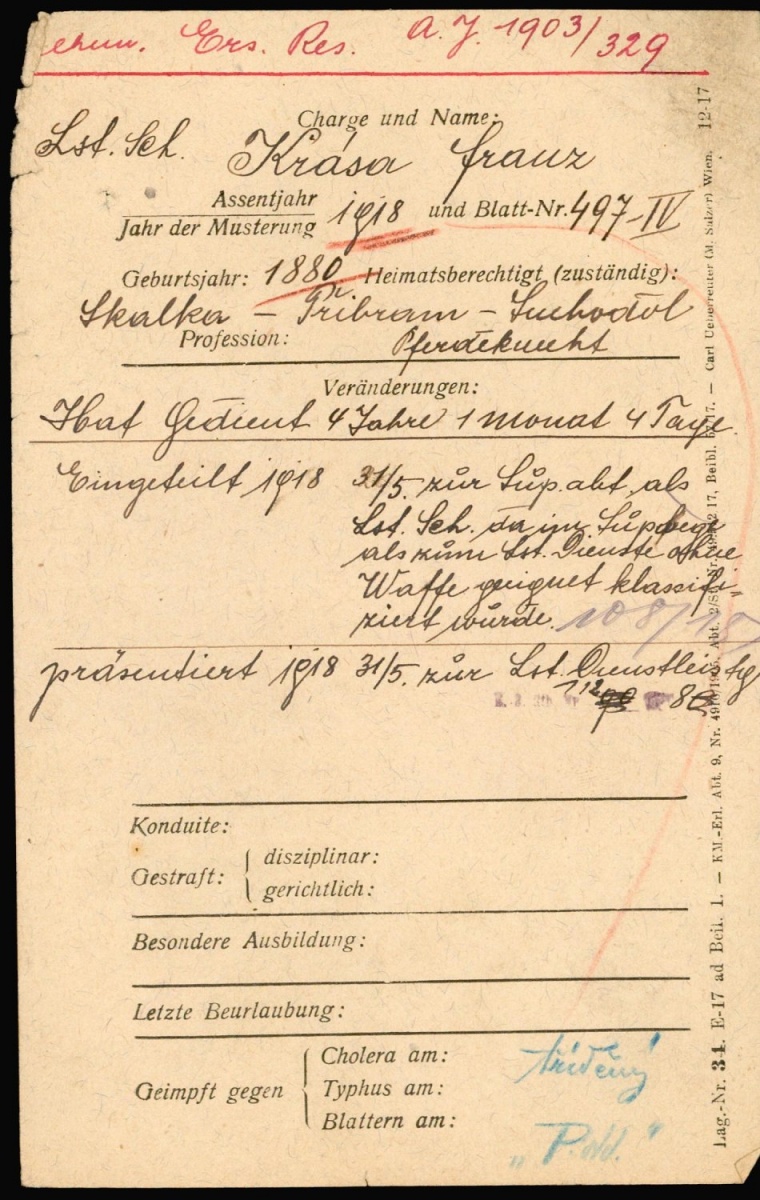 ehem. Ers. Res. A.J. 1903/329
Charge und Name:
Lst. Sch. Krása Franz
Assentjahr
Jahr der Musterung 1918 und Blatt-Nr. 497-IV
Geburtsjahr: 1880 Heimatsberechtigt (zuständig):
Skalka – Přibram – Suchodol
Profession: Pferdeknecht
Veränderungen:
Hat Gedient 4 Jahre 1 Monat 4 Tage
Eingeteilt 1918 31/5. zur Sup. abt. als
Lst. Sch. da im
als zum Lst. Dienste ohne
Waffe geeignet klassifi-
ziert wurde. 108/18
präsentiert 1918 31/5. zur Lst. Dienstleistg
Konduite:
Gestraft: disziplinar:
gerichtlich:
Besondere Ausbildung:
Letzte Beurlaubung:
Geimpft gegen Cholera am:
Typhus am:
Blattern am:
tříděný
Lag.-Nr. 34. E-17 ad Beil. 1. — KM.-Erl. Abt. 9, Carl Ueberreuter (M. Salzer) Wien. 12-17